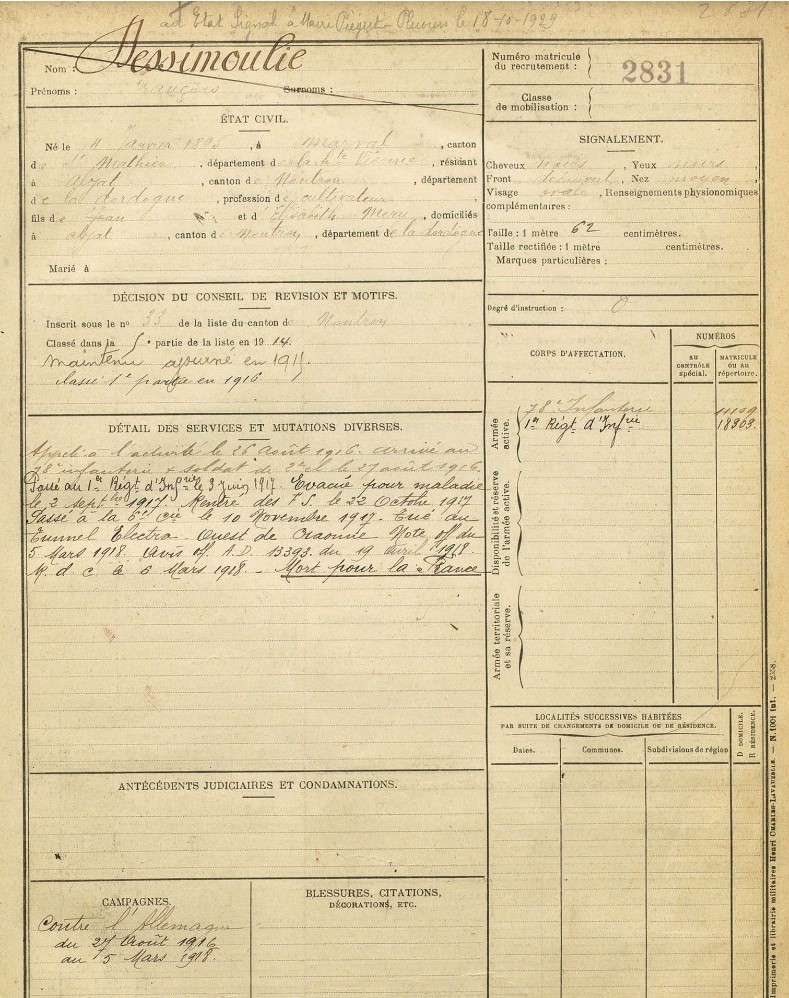 ad Etat Signal à Maire Piégut-Pluviers le 18-10-1929
Nom : Dessimoulie
Prénoms : François Surnoms :
Numéro matricule du recrutement : 2831
Classe de mobilisation :
ÉTAT CIVIL.
Né le 4 Janvier 1895, à Marval, canton
de St Mathieu, département de la Hte Vienne, résidant
à Abjat, canton de Nontron, département
de la Dordogne, profession de cultivateur
fils de Jean et d'Elisabeth, domiciliés
à abjat, canton de Nontron, département de la Dordogne
Marié à
SIGNALEMENT.
Cheveux noirs, Yeux noirs
Front découvert, Nez moyen
Visage ovale, Renseignements physionomiques
complémentaires :
Taille : 1 mètre 62 centimètres.
Taille rectifiée : 1 mètre centimètres.
Marques particulières :
Degré d'instruction : 0
DÉCISION DU CONSEIL DE REVISION ET MOTIFS.
Inscrit sous le no 33 de la liste du canton de Nontron
Classé dans la 5e partie de la liste en 1914.
maintenu ajourné en 1915.
classé 1e partie en 1916
CORPS D'AFFECTATION.
NUMÉROS
AU CONTRÔLE spécial.
MATRICULE OU AU répertoire.
Armée active.
78e Infanterie 11109
1er Régt d'Infrie 18303.
Disponibilité et réserve de l'armée active.
Armée territoriale et sa réserve.
DÉTAIL DES SERVICES ET MUTATIONS DIVERSES.
Appelé à l'activité le 26 août 1916. arrivé au
78e infanterie & soldat de 2e cl le 27 août 1916.
Passé au 1er Régt d'Infrie le 3 juin 1917. Evacué pour maladie
le 2 septbre 1917. Rentré des T.S. le 22 Octobre 1917
Passé à la 6e Cie le 10 Novembre 1917. Tué au
Tunnel Electra Ouest de Craonne Note off du
5 Mars 1918. (avis off. A.D. 13393. du 19 avril 1918.
R. d. c le 6 Mars 1918. - Mort pour la France
LOCALITÉS SUCCESSIVES HABITÉES
PAR SUITE DE CHANGEMENTS DE DOMICILE OU DE RÉSIDENCE.
Dates. Communes. Subdivisions de région
D DOMICILE.
R RÉSIDENCE.
ANTÉCÉDENTS JUDICIAIRES ET CONDAMNATIONS.
CAMPAGNES.
Contre l'Allemagne
du 27 Août 1916
au 5 Mars 1918.
BLESSURES, CITATIONS,
DÉCORATIONS, ETC.
Imprimerie et librairie militaires Henri CHARLES-LAVAUZELLE. — N. 1001 int. — 2358.